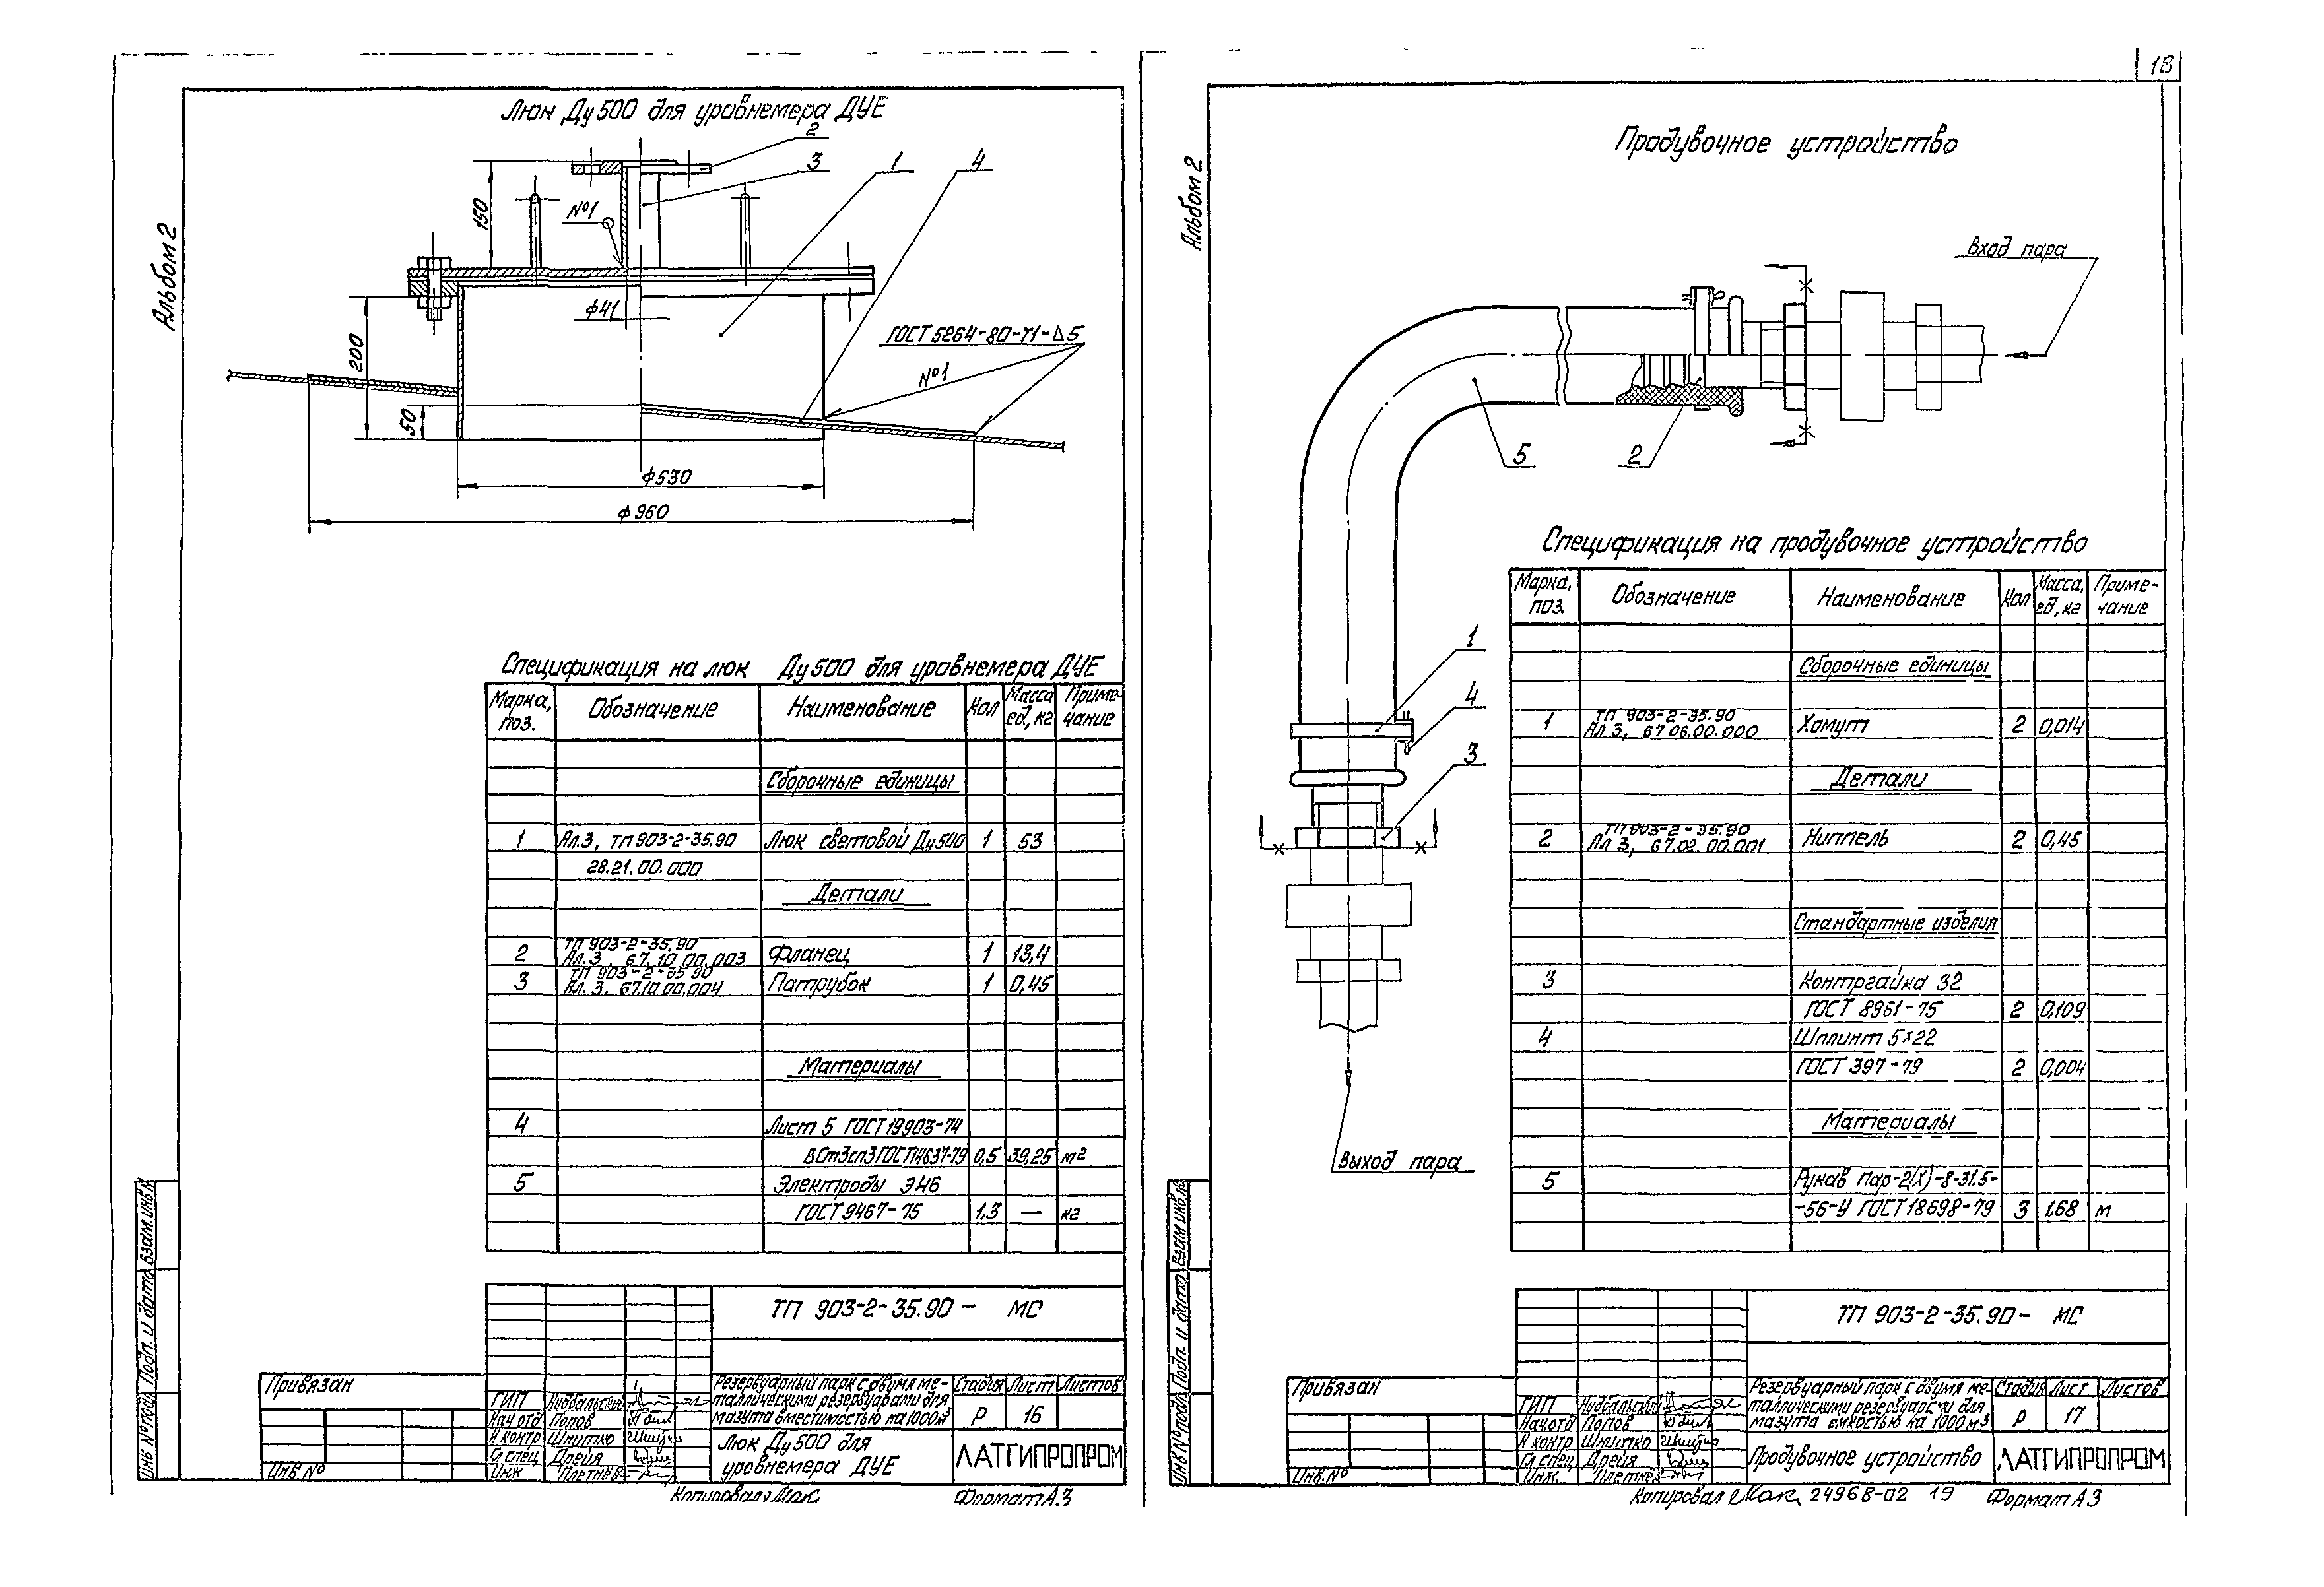 18
Альбом 2
Люк Ду 500 для уровнемера ДУЕ
2
3
1
4
150
№1
ф41
200
50
ГОСТ 5264-80-Т1-Δ5
№1
ф530
ф960
Спецификация на люк Ду 500 для уровнемера ДУЕ
Марка, поз. Обозначение Наименование Кол Масса ед, кг Приме-чание
Сборочные единицы
1 Ал.3, ТП 903-2-35.90 Люк световой Ду500 1 53
28.21.00.000
Детали
ТП 903-2-35.90
2 Ал. 3, 67.10.00.003 Фланец 1 13,4
ТП 903-2-35.90
3 Ал. 3, 67.10.00.004 Патрубок 1 0,45
Материалы
4 Лист 5 ГОСТ 19903-74
ВСт3сп3 ГОСТ 14637-79 0,5 39,25 м2
5 Электроды Э46
ГОСТ 9467-75 1,3 — кг
Взам. инв. №
Подп. и дата
Инв № подл
ТП 903-2-35.90- МС
Привязан
Инв №
ГИП
Нач отд Попов
Н контр Шнитко
Гл спец Дрейя
Инж Плетнёв
Резервуарный парк с двумя ме-
таллическими резервуарами для
мазута вместимостью на 1000м3
Стадия Лист Листов
Р 16
Люк Ду 500 для
уровнемера ДУЕ
ЛАТГИПРОПРОМ
Копировал
Формат А3
Альбом 2
Продувочное устройство
Вход пара
5
2
1
4
3
Выход пара
Спецификация на продувочное устройство
Марка, поз. Обозначение Наименование Кол Масса, ед, кг Приме-чание
Сборочные единицы
ТП 903-2-35.90
1 Ал 3, 67 06.00.000 Хомут 2 0,014
Детали
ТП 903-2-35.90
2 Ал 3, 67.02.00.001 Ниппель 2 0,45
Стандартные изделия
3 Контргайка 32
ГОСТ 8961-75 2 0,109
4 Шплинт 5х22
ГОСТ 397-79 2 0,004
Материалы
5 Рукав Пар-2(Х)-8-31.5-
-56-У ГОСТ 18698-79 3 1,68 м
Взам инв. №
Подп. и дата
Инв № подл
ТП 903-2-35.90- МС
Привязан
Инв. №
ГИП
Нач отд Попов
Н контр Шнитко
Гл спец. Дрейя
Инж. Плетнёв
Резервуарный парк с двумя ме-
таллическими резервуарами для
мазута емкостью на 1000 м3
Стадия Лист Листов
Р 17
Продувочное устройство
ЛАТГИПРОПРОМ
Копировал
24968-02 19
Формат А3